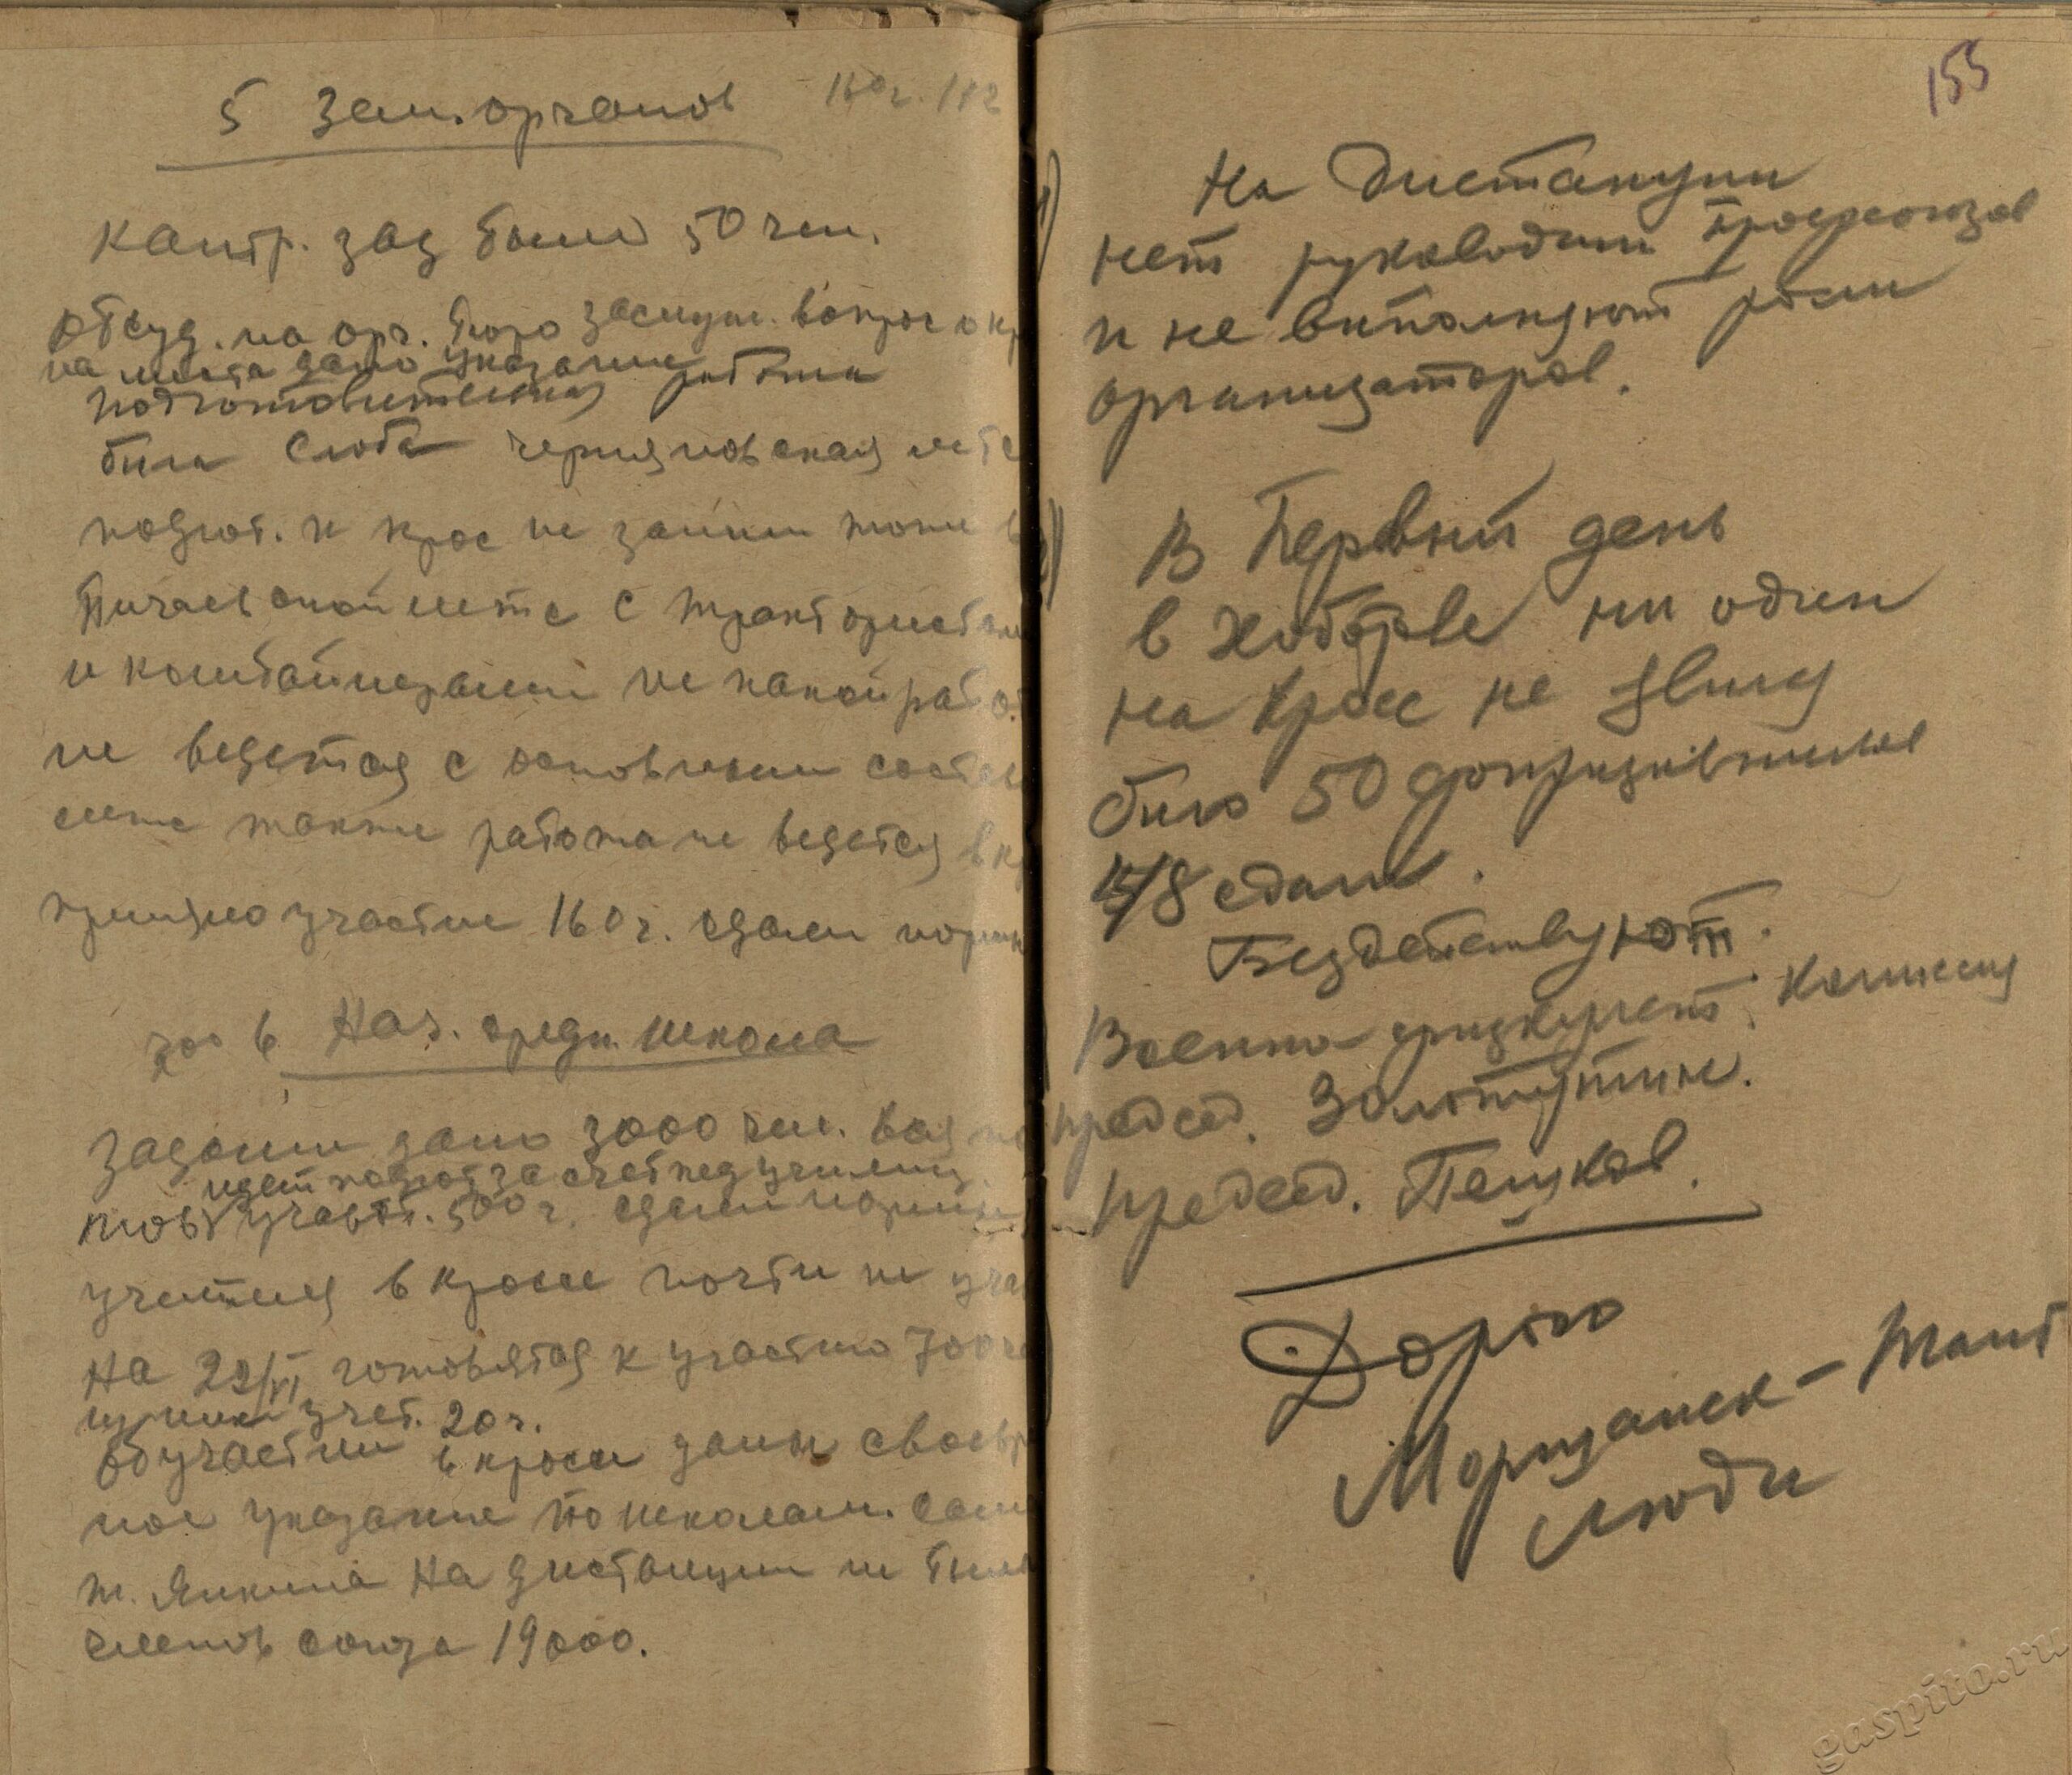 5 Зем. органов 160 ч. 112
контр. зад было 50 чел.
Обсуд. на орг. бюро заслуш. вопрос о кр
на места дано указание
подготовительная работа
была слаба черняновская мтс
подгот. к крос не заним тоже в
Пичаев ской мтс с трактористам
и комбайнерами не какой рабо
не ведется с основными состав
мтс также работа не ведется в кр
приняло участие 160 ч. сдали нормы
6 Нач. средн. школа
Задание дано 3000 чел.
идет подгот за счет пед училищ
участ. 500 ч. сдали нормы
учителя в кроссе почти не учас
На 22/VI готовятся к участию 700
из них учит. 20 ч.
Об участии в кроссе даны своевр
ное указание по школам. Сам
т. Янкина на дистанции не был
членов союза 19000.
155
1) На дистанции
нет руководит профсоюзов
и не выполняют роли
организаторов.
В Первый день
в Хоботове ни один
на кросс не явился
было 50 допризывников
18 сдали.
Бездействуют
Военно-физкульт. комиссия
председ. Золотухин.
Председ. Пешков.
Моршанск – Тамб
люди
gaspito.ru